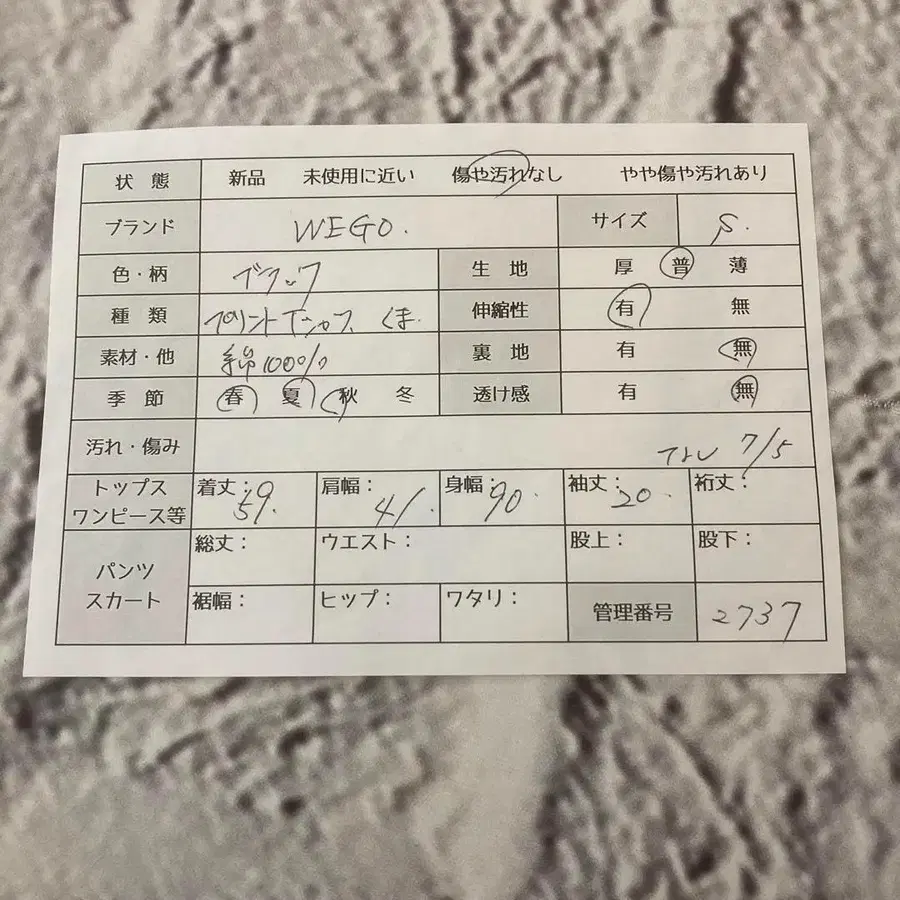 状態 新品 未使用に近い 傷や汚れなし やや傷や汚れあり
ブランド WEGO. サイズ S.
色・柄 ブラック 生地 厚 普 薄
種類 プリントTシャツ くま. 伸縮性 有 無
素材・他 綿100% 裏地 有 無
季節 春 夏 秋 冬 透け感 有 無
汚れ・傷み 7/5
トップス ワンピース等 着丈: 59. 肩幅: 41. 身幅: 90. 袖丈: 20. 裄丈:
パンツ スカート 総丈: ウエスト: 股上: 股下:
裾幅: ヒップ: ワタリ: 管理番号 2737